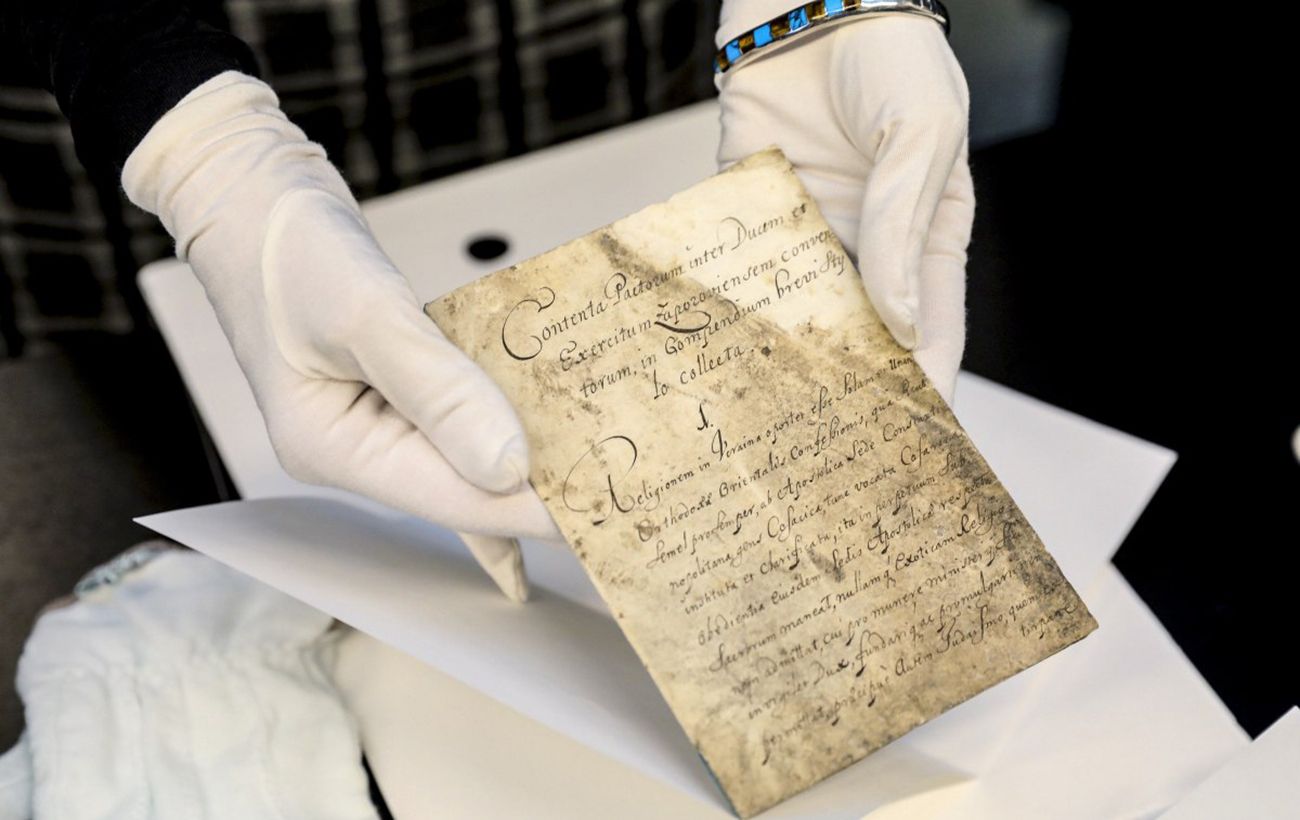 Contenta Pactorum inter Ducem et
Exercitum Zaporoviensem conven
torum, in Compendium brevi Sty
lo collecta.
1.
Religionem in Vcraina oportet esse Solam Unam
Orthodoxæ Orientalis Confessionis, quæ
semel pro semper, ab Apostolica Sede Constanti
nopolitana, gens Cosacica, tunc vocata Cosar
instituta et clarificata, ita in perpetuum sub
obedientia Eiusdem Sedis Apostolicæ
Sacrorum maneat, nullamq́ Exoticam Religio
non admittat, cui pro munere ministerij
invigilet Dux, fundariq́ ac promulgari
permittat, præcipuè autem Judaismo, quem